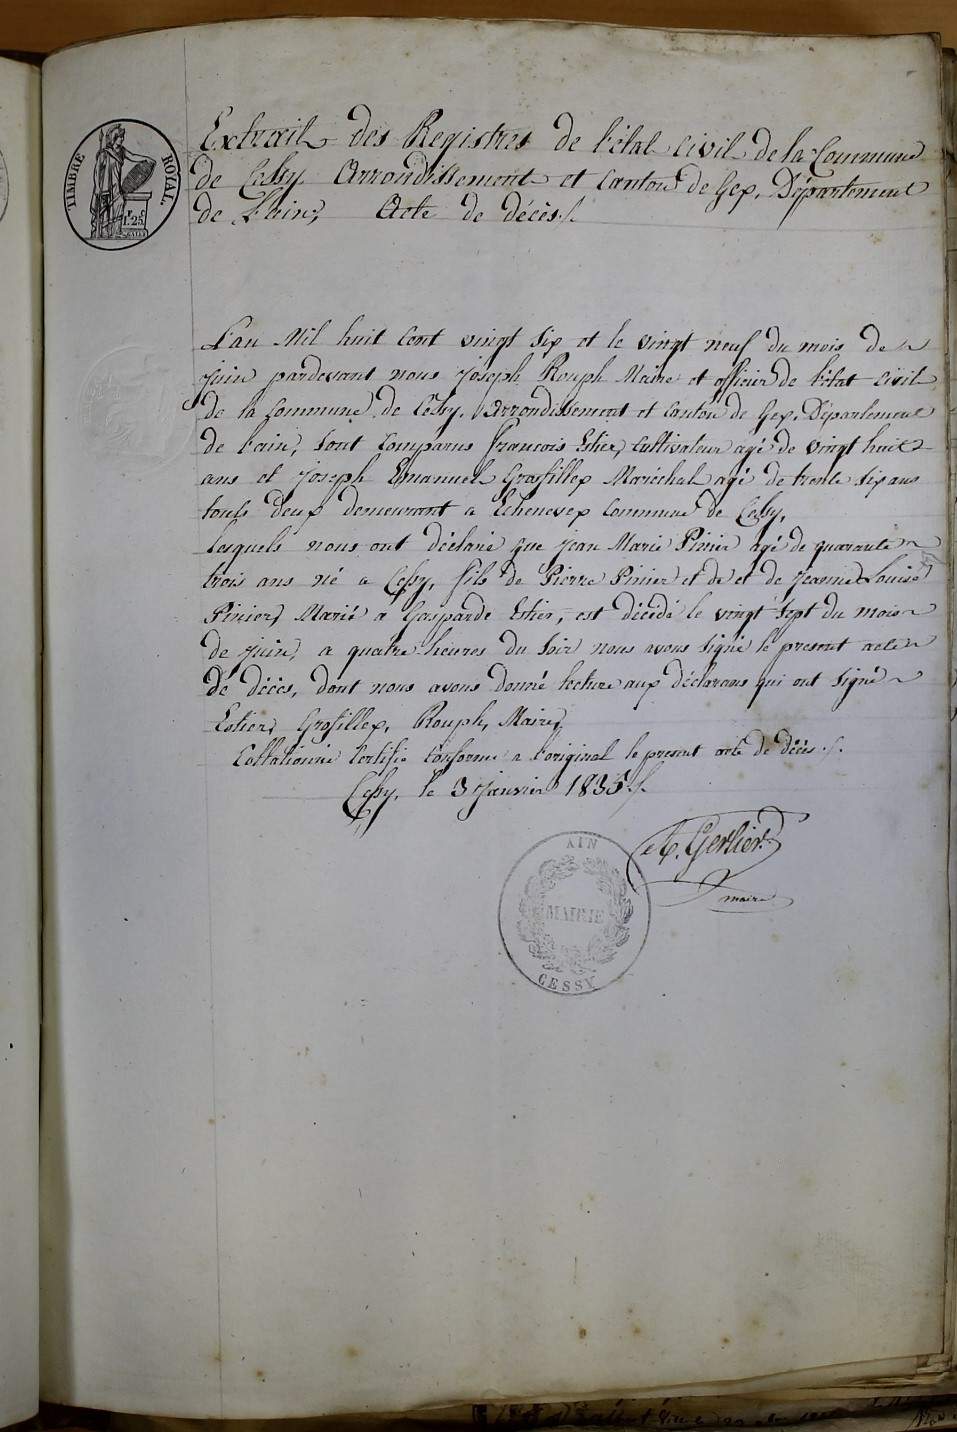 TIMBRE ROYAL.
1 F. 25 C.
Extrait des Registres de l'état civil de la Commune
de Cessy. Arrondissement et Canton de Gex, Département
de l'ain, Acte de décès./.
L'an Mil huit Cent vingt six et le vingt neuf du mois de
Juin pardevant nous Joseph Rouph Maire et officier de l'état civil
de la Commune de Cessy, Arrondissement et Canton de Gex, Département
de l'ain, sont Comparus francois Estier, Cultivateur agé de vingt huit
ans et Joseph Emanuel Grosfillex Maréchal agé de trente six ans
touts deux demeurant a Echenevex Commune de Cessy,
lesquels nous ont déclaré que Jean Marie Pinier agé de quarante
trois ans né a Cessy, fils de Pierre Pinier et de et de Jeanne Louise
Pinier, Marié a Gasparde Estier, est décédé le vingt sept du mois
de Juin, a quatre heures du soir nous avons signé le present acte
de décès, dont nous avons donné lecture aux déclarans qui ont signé
Estier, Grosfillex, Rouph, Maire,
Collationné Certifié Conforme a l'original le present acte de décès./.
Cessy, le 3 Janvier 1835./.
A. Gerlier
maire
AIN
MAIRIE
CESSY